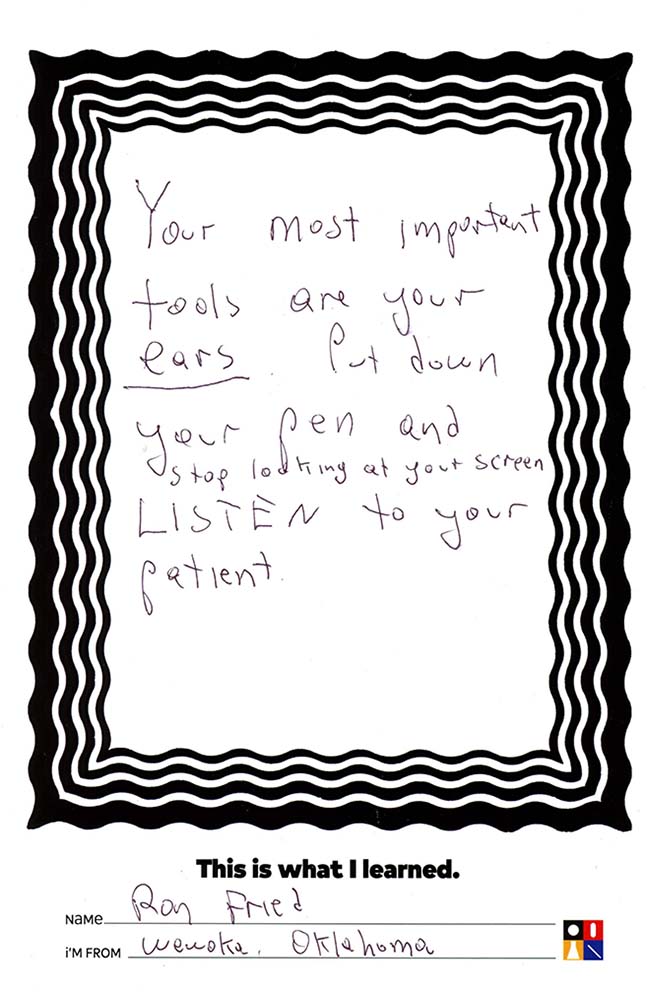 Your most important
tools are your
ears. Put down
your pen and
stop looking at your screen
LISTEN to your
patient.
This is what I learned.
NaMe Ron Fried
i'M FROM Wewoka, Oklahoma